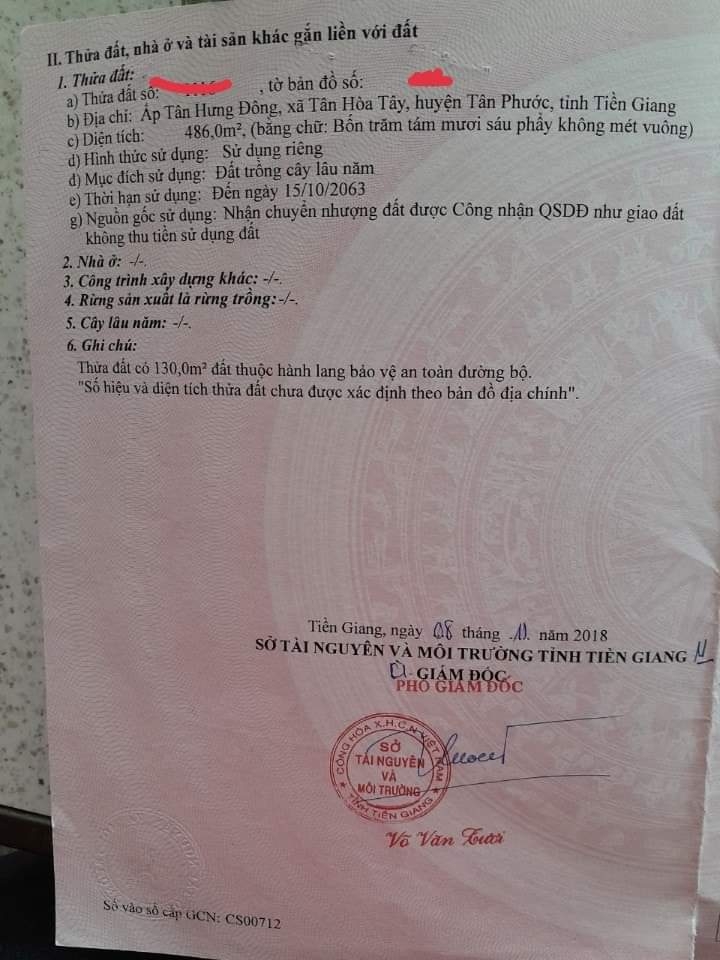 II. Thửa đất, nhà ở và tài sản khác gắn liền với đất
1. Thửa đất:
a) Thửa đất số: , tờ bản đồ số:
b) Địa chỉ: Ấp Tân Hưng Đông, xã Tân Hòa Tây, huyện Tân Phước, tỉnh Tiền Giang
c) Diện tích: 486,0m², (bằng chữ: Bốn trăm tám mươi sáu phẩy không mét vuông)
d) Hình thức sử dụng: Sử dụng riêng
đ) Mục đích sử dụng: Đất trồng cây lâu năm
e) Thời hạn sử dụng: Đến ngày 15/10/2063
g) Nguồn gốc sử dụng: Nhận chuyển nhượng đất được Công nhận QSDĐ như giao đất
không thu tiền sử dụng đất
2. Nhà ở: -/-.
3. Công trình xây dựng khác: -/-.
4. Rừng sản xuất là rừng trồng: -/-.
5. Cây lâu năm: -/-.
6. Ghi chú:
Thửa đất có 130,0m² đất thuộc hành lang bảo vệ an toàn đường bộ.
"Số hiệu và diện tích thửa đất chưa được xác định theo bản đồ địa chính".
Tiền Giang, ngày 08 tháng .11. năm 2018
SỞ TÀI NGUYÊN VÀ MÔI TRƯỜNG TỈNH TIỀN GIANG
GIÁM ĐỐC
PHÓ GIÁM ĐỐC
CỘNG HÒA X.H.C.N VIỆT NAM
SỞ
TÀI NGUYÊN
VÀ
MÔI TRƯỜNG
TỈNH TIỀN GIANG
Võ Văn Tươi
Số vào sổ cấp GCN: CS00712